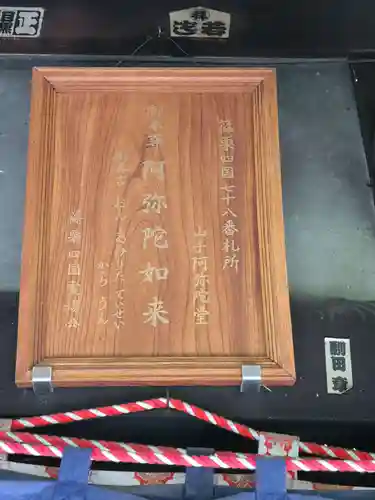 篠栗四国七十八番札所
山手阿弥陀堂
御本尊
阿弥陀如来
御真言 おん あみりた ていせい
からうん
篠栗四国霊場会